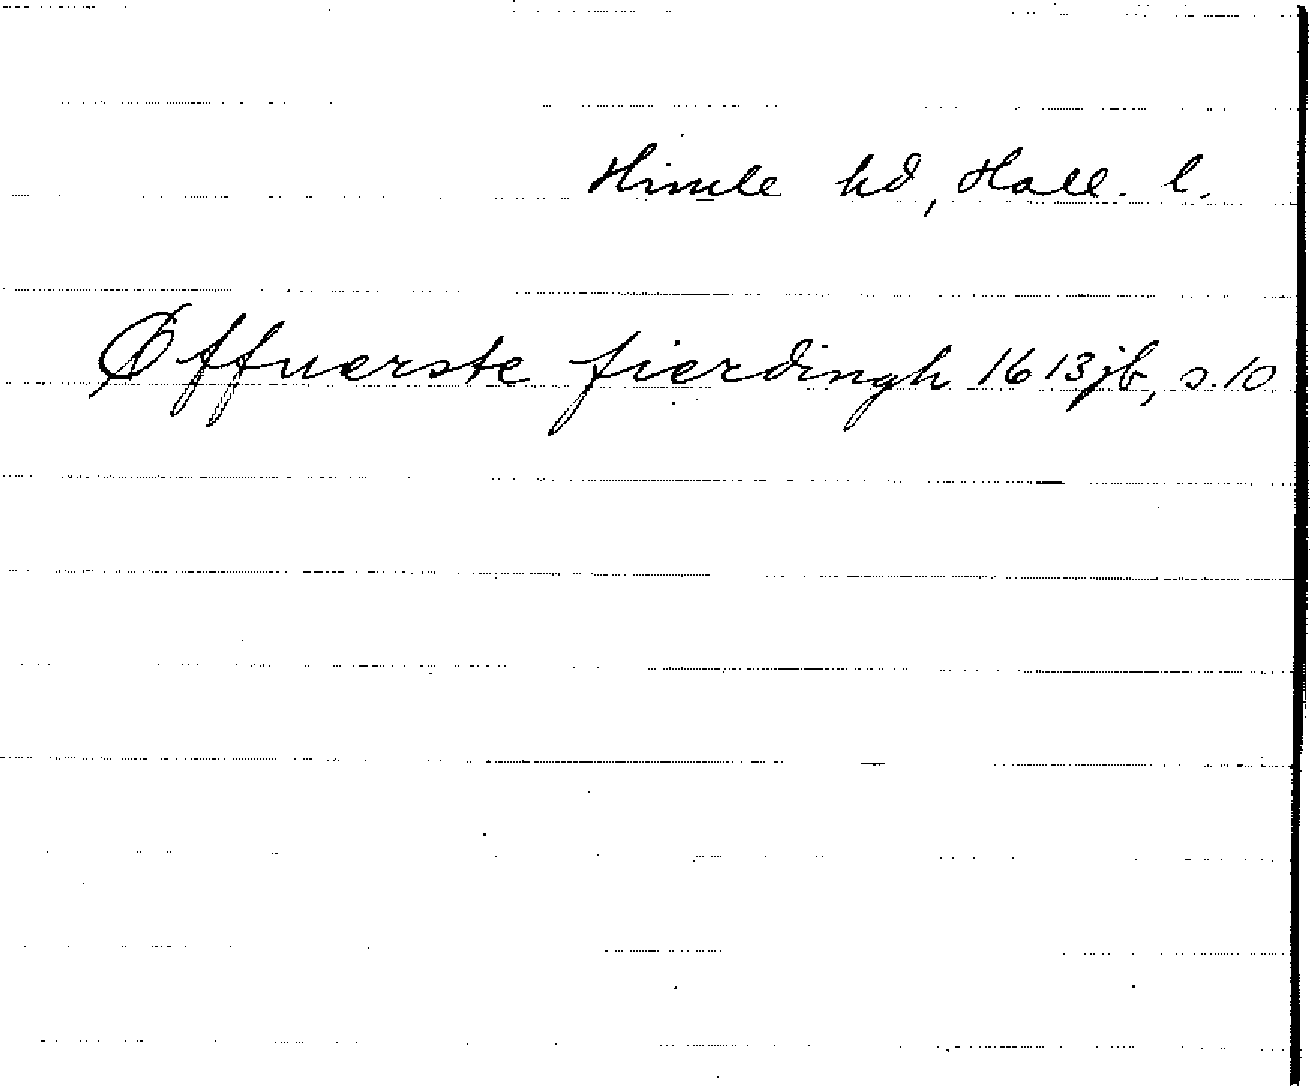 Himle hd, Hall. l.
Øffuerste fierdingh 1613 jb, s. 10